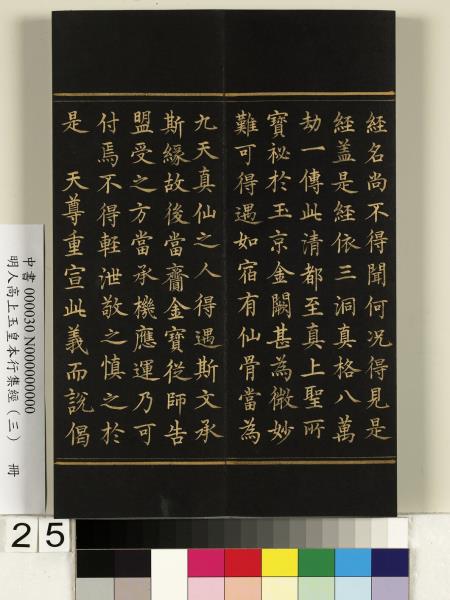 經名尚不得聞何况得見是
經盖是經依三洞真格八萬
劫一傳此清都至真上聖所
寳祕於玉京金闕甚為微妙
難可得遇如宿有仙骨當為
九天真仙之人得遇斯文承
斯緣故後當齎金寳從師告
盟受之方當承機應運乃可
付焉不得輊泄敬之慎之於
是　天尊重宣此義而說偈
中書 000030 N000000000
明人高上玉皇本行集經（三） 冊
25